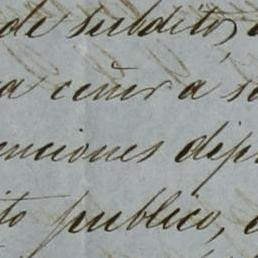 de subditos
a ceñir á s
enciones dip
ito publico,